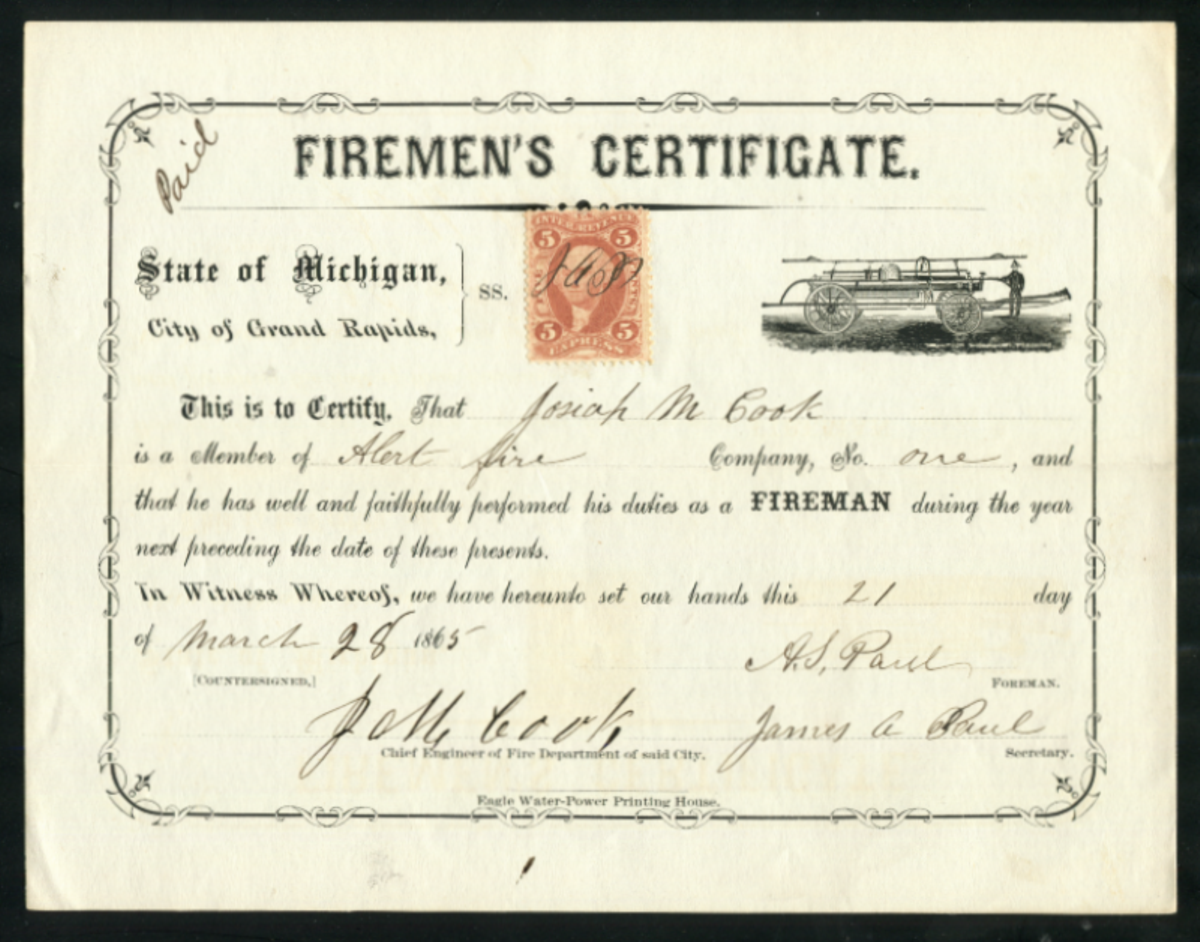 Paid
FIREMEN'S CERTIFIGATE.
INTER. REVENUE
5 5
FIVE CENTS
5 5
EXPRESS
State of Michigan,
City of Grand Rapids,
SS.
This is to Certify, That Josiah M Cook
is a Member of Alert fire Company, No. one, and
that he has well and faithfully performed his duties as a FIREMAN during the year
next preceding the date of these presents.
In Witness Whereof, we have hereunto set our hands this 21 day
of March 28 1865
A. S. Paul
[COUNTERSIGNED,] FOREMAN.
Cook James A Paul
Chief Engineer of Fire Department of said City. Secretary.
Eagle Water-Power Printing House.